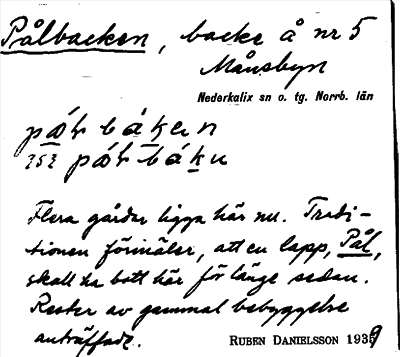 Pålbacken, backe å nr 5
Månsbyn
Nederkalix sn o. tg. Norrb. län
Flera gårdar ligga här nu. Tradi-
tionen förmäler, att en lapp, Pål,
skall ha bott här för länge sedan.
Rester av gammal bebyggelse
anträffade. RUBEN DANIELSSON 1939